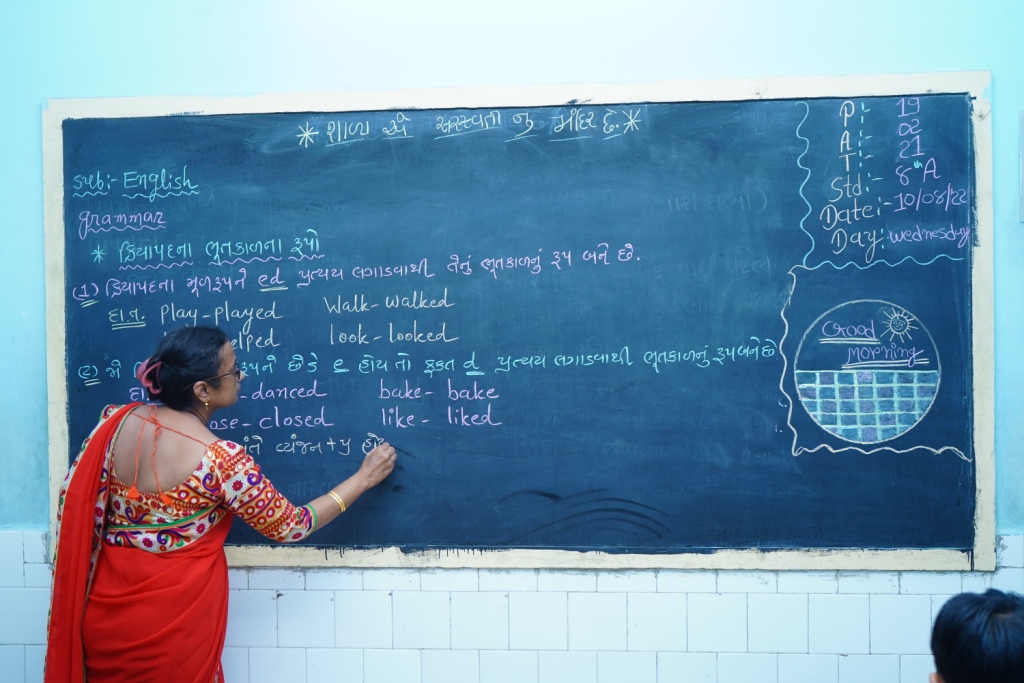 * શાળા એ સરસ્વતી નુ મંદિર છે. *
P :- 19
A :- 02
T :- 21
Std :- 8th A
Date :- 10/08/22
Day : wednesday
sub :- English
grammar
* ક્રિયાપદના ભૂતકાળના રૂપો
(1) ક્રિયાપદના મૂળરૂપને ed પ્રત્યય લગાડવાથી તેનું ભૂતકાળનું રૂપ બને છે.
દા.ત. Play - played Walk - walked
elped look - looked
(૨) જે રૂપને છેડે e હોય તો ફકત d પ્રત્યય લગાડવાથી ભૂતકાળનું રૂપ બને છે
દા - danced bake - bake
ose - closed like - liked
અંતે વ્યંજન + y હોય
Good
Morning